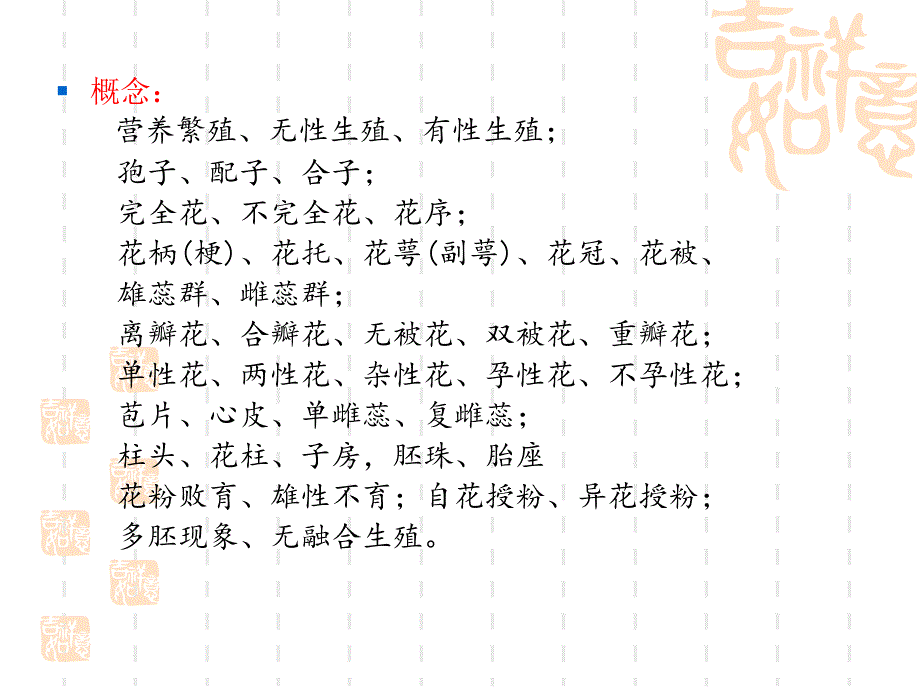 吉祥如意
概念：
营养繁殖、无性生殖、有性生殖；
孢子、配子、合子；
完全花、不完全花、花序；
花柄(梗)、花托、花萼(副萼)、花冠、花被、
雄蕊群、雌蕊群；
离瓣花、合瓣花、无被花、双被花、重瓣花；
单性花、两性花、杂性花、孕性花、不孕性花；
苞片、心皮、单雌蕊、复雌蕊；
柱头、花柱、子房，胚珠、胎座
花粉败育、雄性不育；自花授粉、异花授粉；
多胚现象、无融合生殖。
吉祥如意
吉祥如意
吉祥如意
吉祥如意
吉祥如意
吉祥如意